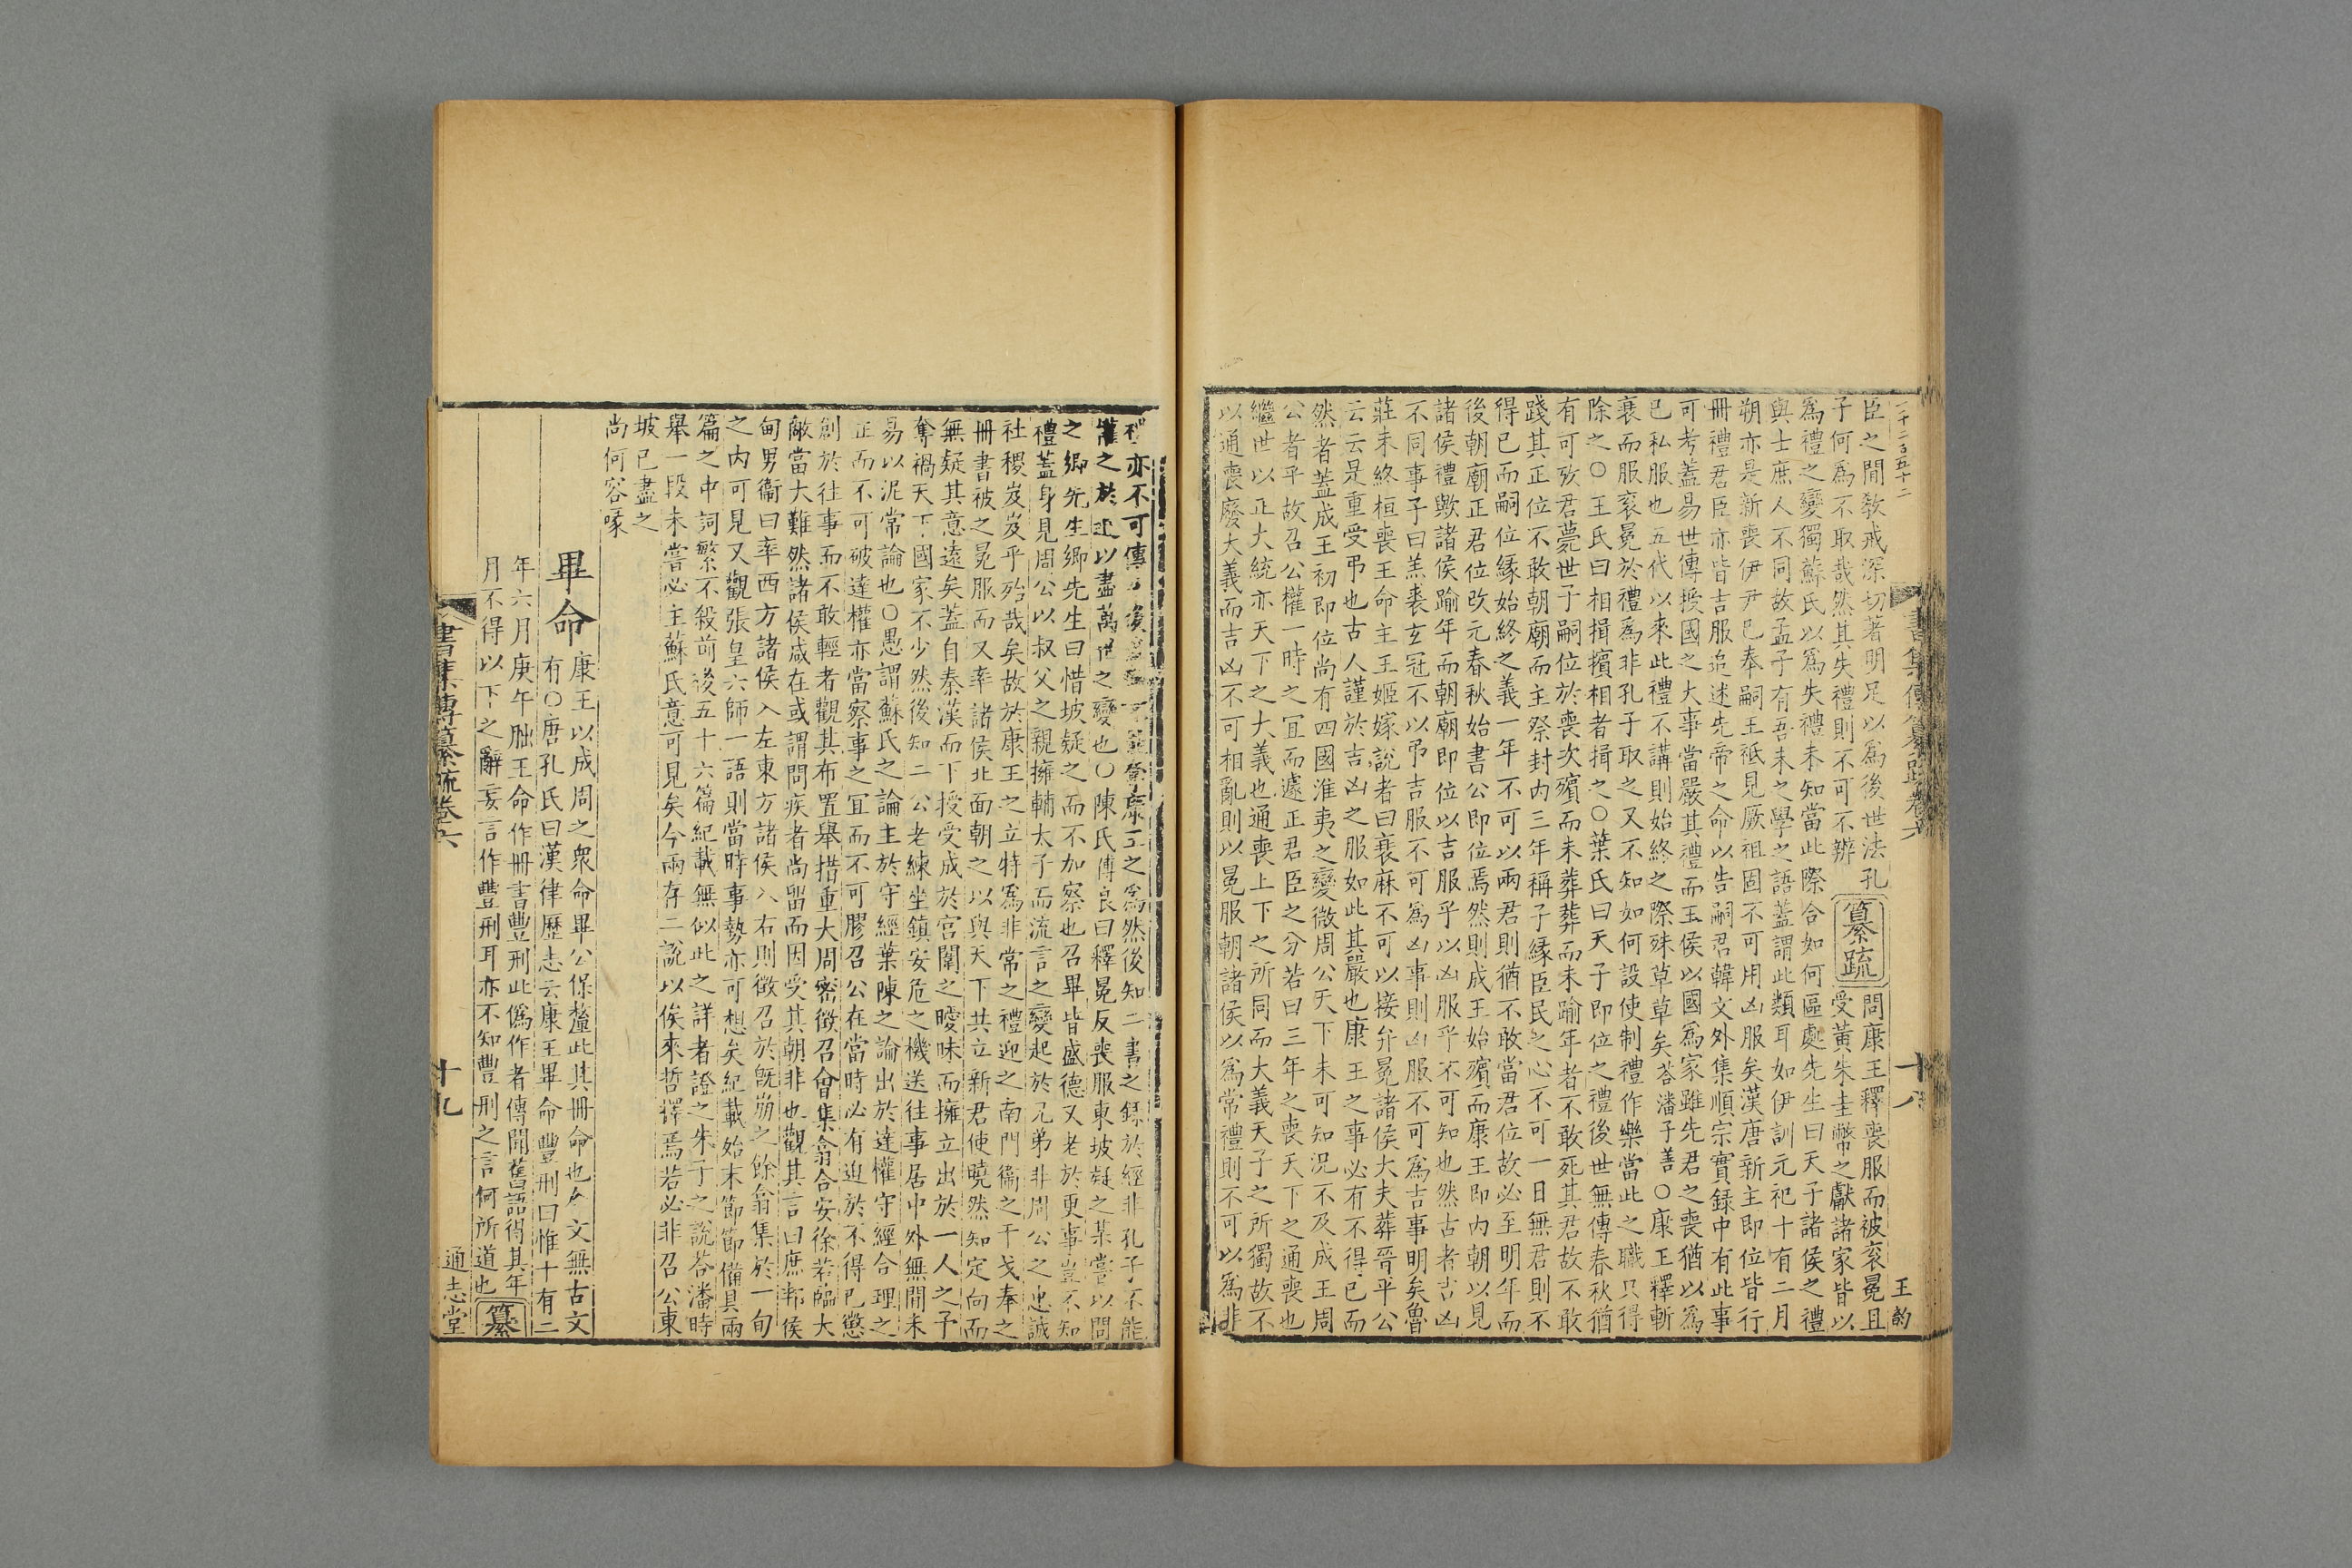 二千二百五十二
書集傳纂疏卷六
十八
王的
臣之間敎戒深切著明足以爲後世法孔
子何爲不取哉然其失禮則不可不辨
纂疏
問康王釋喪服而被衮冕且
受黃朱圭幣之獻諸家皆以
爲禮之變獨蘇氏以爲失禮未知當此際合如何區處先生曰天子諸侯之禮
與士庶人不同故孟子有吾未之學之語蓋謂此類耳如伊訓元祀十有二月
朔亦是新喪伊尹已奉嗣王祗見厥祖固不可用凶服矣漢唐新主即位皆行
冊禮君臣亦皆吉服追述先帝之命以告嗣君韓文外集順宗實録中有此事
可考蓋易世傳授國之大事當嚴其禮而王侯以國爲家雖先君之喪猶以爲
已私服也五代以來此禮不講則始終之際殊草草矣荅潘子善○康王釋斬
衰而服衮冕於禮爲非孔子取之又不知如何設使制禮作樂當此之職只得
除之○王氏曰相揖擯相者揖之○葉氏曰天子即位之禮後世無傳春秋猶
有可攷君薨世子嗣位於喪次殯而未葬葬而未踰年者不敢死其君故不敢
踐其正位不敢朝廟而主祭封内三年稱子緣臣民之心不可一日無君則不
得已而嗣位緣始終之義一年不可以兩君則猶不敢當君位故必至明年而
後朝廟正君位改元春秋始書公即位焉然則成王始殯而康王即内朝以見
諸侯禮歟諸侯踰年而朝廟即位以吉服乎以凶服乎不可知也然古者吉凶
不同事子曰羔裘玄冠不以弔吉服不可爲凶事則凶服不可爲吉事明矣魯
莊未終桓喪王命主王姬嫁說者曰衰麻不可以接弁冕諸侯大夫葬晉平公
云云是重受弔也古人謹於吉凶之服如此其嚴也康王之事必有不得已而
然者蓋成王初即位尚有四國淮夷之變微周公天下未可知况不及成王周
公者乎故召公權一時之宜而遽正君臣之分若曰三年之喪天下之通喪也
繼世以正大統亦天下之大義也通喪上下之所同而大義天子之所獨故不
以通喪廢大義而吉凶不可相亂則以冕服朝諸侯以爲常禮則不可以爲非
禮亦不可傳之後世可無康王之爲然後知二書之録於經非孔子不能
權之於道以盡萬世之變也○陳氏傅良曰釋冕反喪服東坡疑之某嘗以問
之鄉先生鄉先生曰惜坡疑之而不加察也召畢皆盛德又老於更事豈不知
禮蓋身見周公以叔父之親擁輔太子而流言之變起於兄弟非周公之忠誠
社稷岌岌乎殆哉矣故於康王之立特爲非常之禮迎之南門衞之干戈奉之
冊書被之冕服而又率諸侯北面朝之以與天下共立新君使曉然知定向而
無疑其意遠矣蓋自秦漢而下授受成於宮闈之曖昧而擁立出於一人之予
奪禍天下國家不少然後知二公老練坐鎮安危之機送往事居中外無間未
易以泥常論也○愚謂蘇氏之論主於守經葉陳之論出於達權守經合理之
正而不可破達權亦當察事之宜而不可膠召公在當時必有迫於不得已懲
創於往事而不敢輕者觀其布置舉措重大周密徵召會集翕合安徐若臨大
敵當大難然諸侯咸在或謂問疾者尚留而因受其朝非也觀其言曰庶邦侯
甸男衞曰率西方諸侯入左東方諸侯入右則徵召於旣崩之餘翕集於一旬
之内可見又觀張皇六師一語則當時事勢亦可想矣紀載始末節節備具兩
篇之中詞繁不殺前後五十六篇紀載無似此之詳者證之朱子之說荅潘時
舉一段未嘗必主蘇氏意可見矣今兩存二說以俟來哲擇焉若必非召公東
坡已盡之
尚何容喙
畢命
康王以成周之衆命畢公保釐此其冊命也今文無古文
有○唐孔氏曰漢律歷志云康王畢命豐刑曰惟十有二
年六月庚午朏王命作冊書豐刑此僞作者傳聞舊語得其年
月不得以下之辭妄言作豐刑耳亦不知豐刑之言何所道也
纂
書集傳纂疏卷六
十九
通志堂